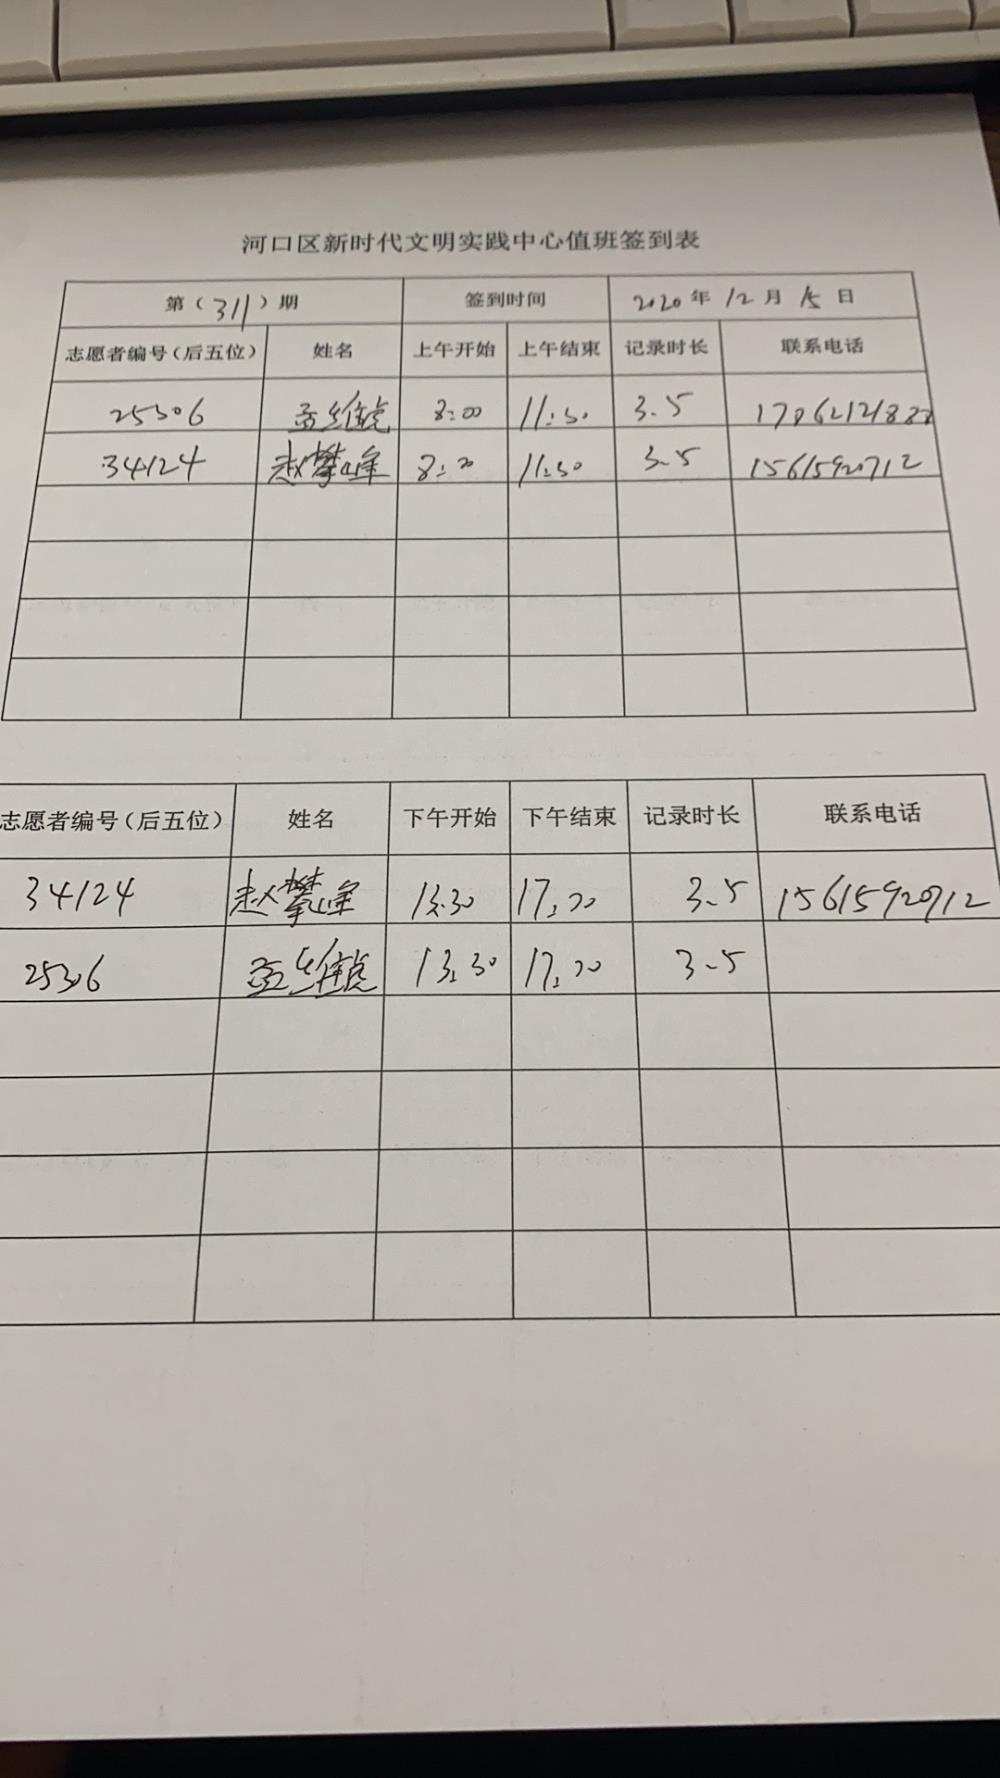 河口区新时代文明实践中心值班签到表
第（311）期 签到时间 2020年12月15日
志愿者编号（后五位） 姓名 上午开始 上午结束 记录时长 联系电话
25306 孟维虎 8:00 11:30 3.5 17862121888
34124 赵攀峰 8:00 11:30 3.5 15615920712
志愿者编号（后五位） 姓名 下午开始 下午结束 记录时长 联系电话
34124 赵攀峰 13:30 17:00 3.5 15615920712
25306 孟维虎 13:30 17:00 3.5